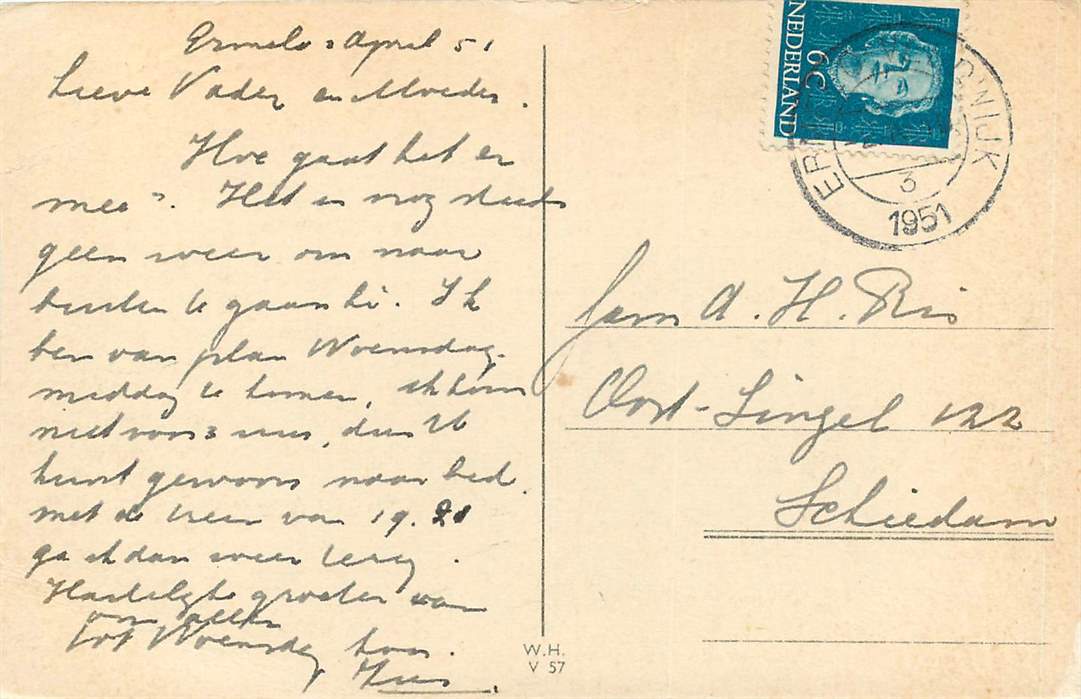 Ermelo 2 April 51
Lieve Vader en Moeder.
Hoe gaat het er
mee? Het is nog steeds
geen weer om naar
buiten te gaan hè. Ik
ben van plan Woensdag-
middag te komen, ik kom
niet voor 3 uur, dus U
kunt gewoon naar bed.
met de trein van 19.21
ga ik dan weer terug.
Hartelijke groeten van
ons allen
tot Woensdag hoor.
NEDERLAND
6C
ER WIJK
3
1951
Fam A. H. Ris
Oost-Singel 122
Schiedam
W.H.
V 57